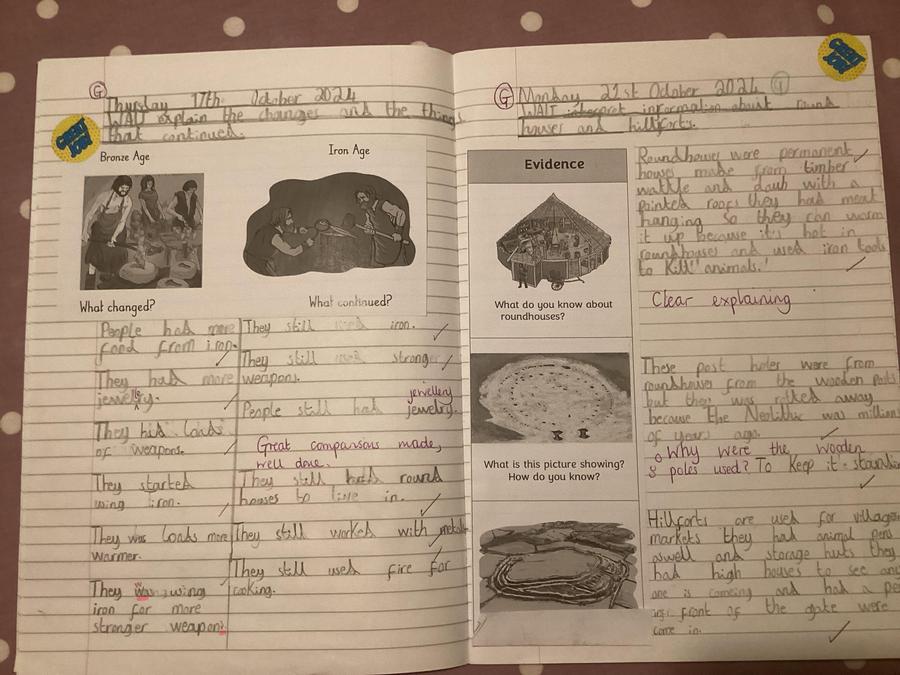 G
Thursday 17th October 2024
WALT explain the changes and the things
that continued.
Bronze Age
Iron Age
What changed?
What continued?
People had more
food from iron.
They had more
jewelry.
They had loads
of weapons.
They started
using iron.
They was loads more
warmer.
They was using
iron for more
stronger weapons.
They still used iron.
They still stronger
weapons.
jewellery
People still had jewelry.
Great comparisons made,
well done.
They still had round
houses to live in.
They still worked with metal
They still used fire for
cooking.
G Monday 21st October 2024 G
WALT interpret information about round
houses and hillforts.
Evidence
What do you know about
roundhouses?
What is this picture showing?
How do you know?
Roundhouses were permanent
houses made from timber
wattle and daub with a
pointed roofs they had meat
hanging so they can warm
it up because it's hot in
roundhouses and used iron tools
to kill animals.
Clear explaining
These post holes were from
roundhouses from the wooden posts
but then was rotted away
because the Neolithic was millions
of years ago.
Why were the wooden
poles used? To Keep it standing
Hillforts are used for villages
markets they had animal pens
aswell and storage huts they
had high houses to see any
one is comeing and had a
front of the gate were
come in.